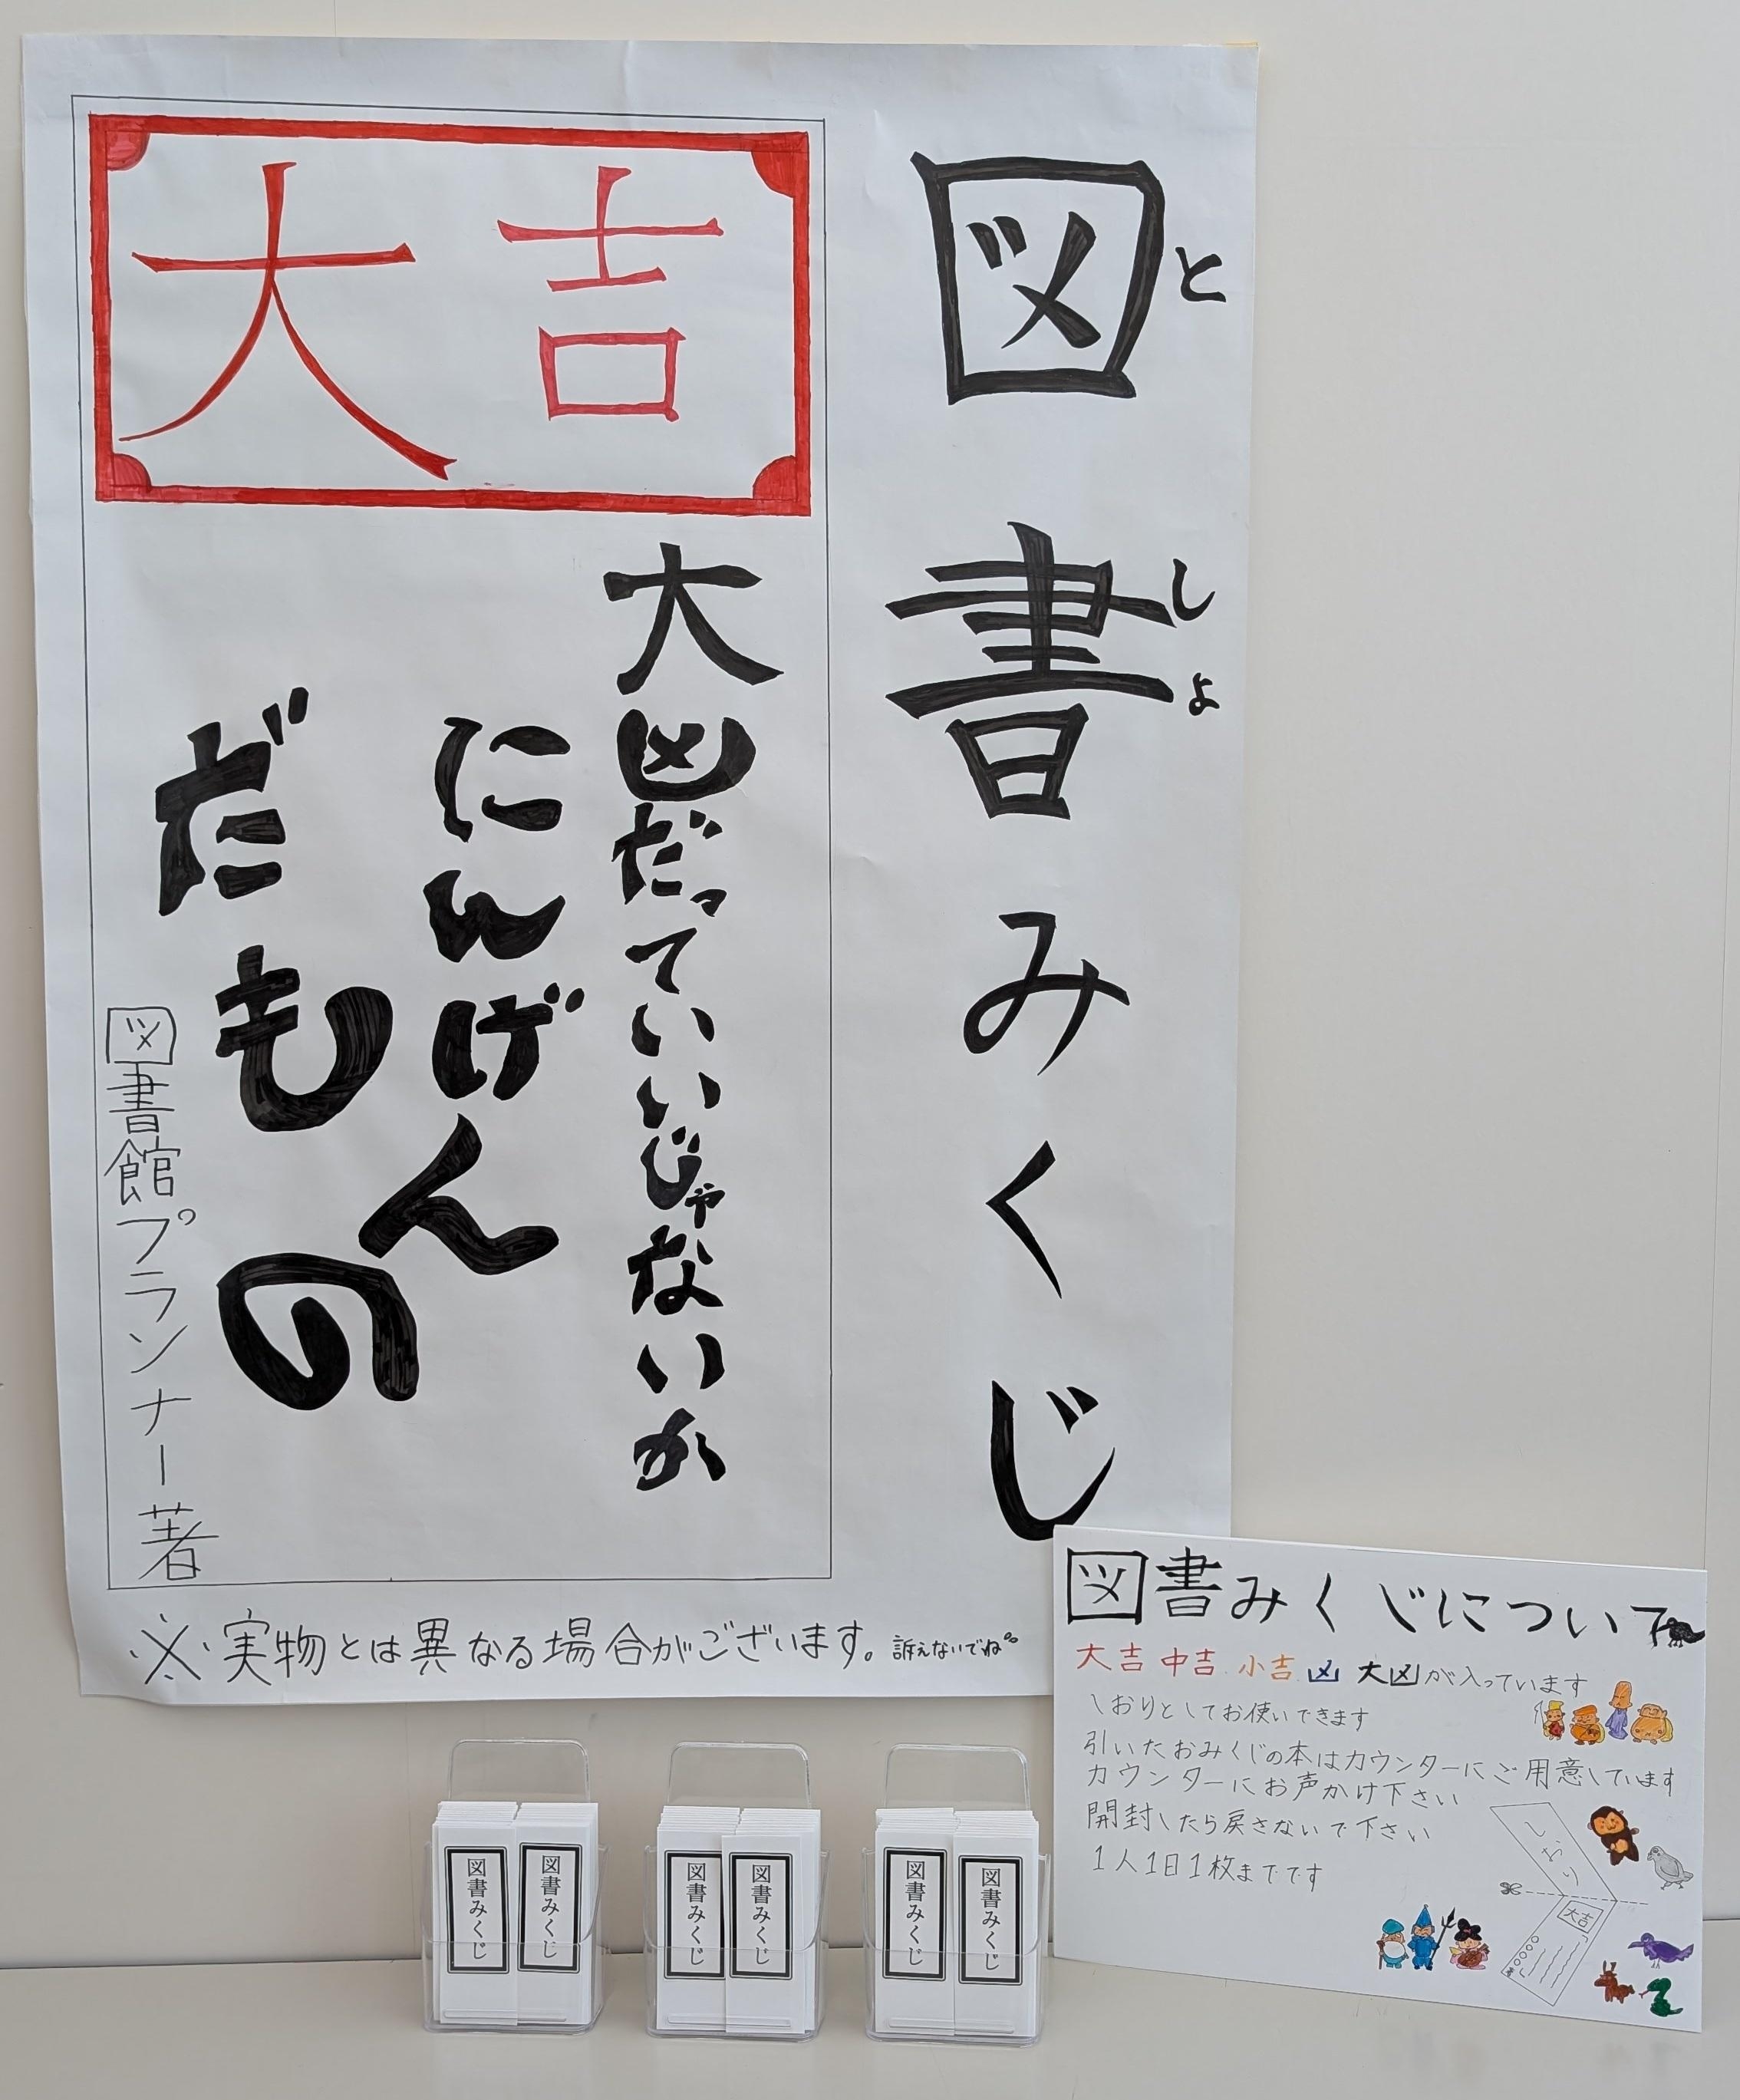 図書みくじ
としょ
大吉
大凶だっていいじゃないか
にんげん
だもの
図書館プランナー著
※実物とは異なる場合がございます。訴えないでね
図書みくじについて
大吉 中吉 小吉 凶 大凶が入っています
しおりとしてお使いできます
引いたおみくじの本はカウンターにご用意しています
カウンターにお声かけ下さい
開封したら戻さないで下さい
1人1日1枚までです
しおり
大吉
図書みくじ
図書みくじ
図書みくじ
図書みくじ
図書みくじ
図書みくじ